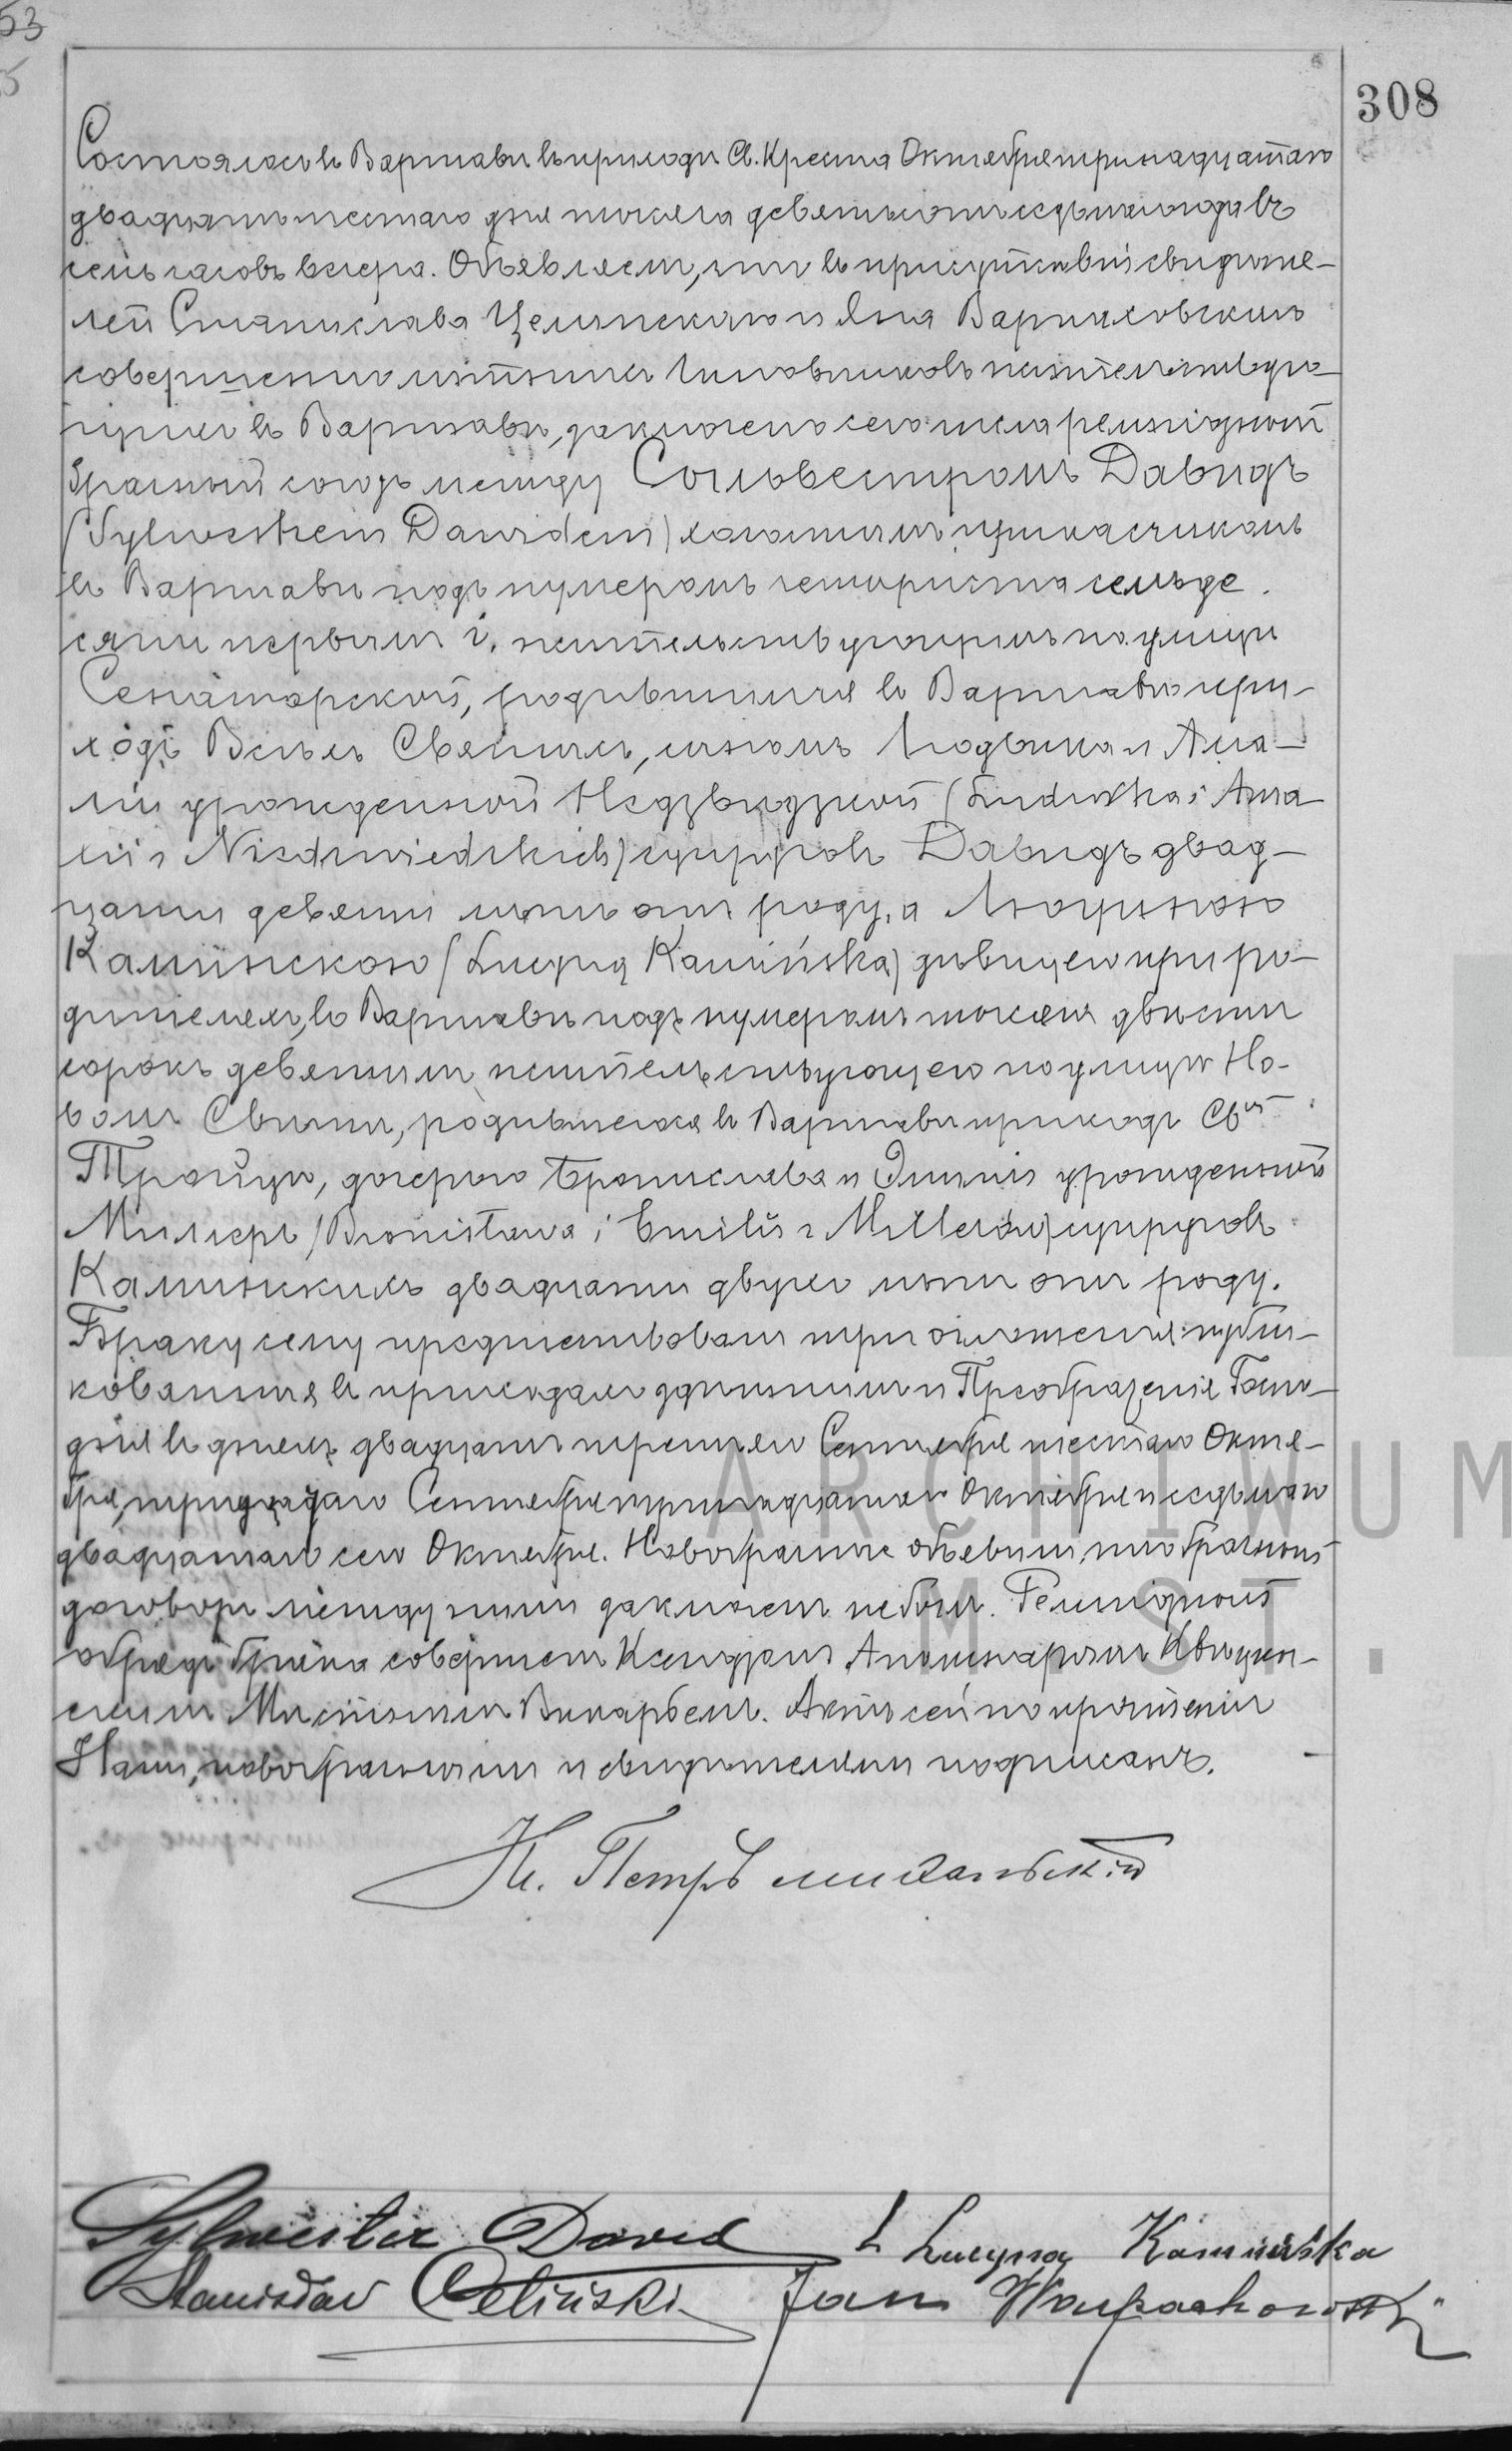 53
5
308
Состоялось въ Варшавѣ въ приходѣ Св. Креста Октября тринадцатаго
двадцать шестаго дня тысяча девятьсотъ седьмаго года въ
семь часовъ вечера. Объявляемъ, что въ присутствіи свидѣте-
лей Станислава Целинскаго и Яна
совершеннолѣтнихъ чиновниковъ жительствую-
щихъ въ Варшавѣ, заключенъ сего числа религіозный
брачный союзъ между Сильвестромъ Давидъ
(Sylwestrem Dawidem) холостымъ, прикасчикомъ
въ Варшавѣ подъ нумеромъ четыриста семьде-
сятъ первымъ i. жительствующимъ по улицѣ
Сенаторской, родившимся въ Варшавѣ при-
ходѣ Всѣхъ Святыхъ, сыномъ Людвика и Ама-
ліи урожденной Недзвидзкой (Ludwika i Ama-
lii z Niedzwiedzkich) супруговъ Давидъ двад-
цати девяти лѣтъ отъ роду, а Люциною
Каминскою (Lucyną Kamińską) дѣвицею при ро-
дителяхъ, въ Варшавѣ подъ нумеромъ тысяча двѣсти
сорокъ девятымъ жительствующею по улицѣ Но-
вомъ Свѣтѣ, родившеюся въ Варшавѣ приходѣ Свт.
Тройцы, дочерью Бронислава и Эмиліи урожденной
Миллеръ (Bronisława i Emilii z Millerów) супруговъ
Каминскихъ двадцати двухъ лѣтъ отъ роду.
Браку сему предшествовали три оглашенія публи-
кованныя въ приходахъ здѣшнимъ и Преображенія Госпо-
дня въ дняхъ двадцать третьяго Сентября шестаго Октя-
бря, тридцатаго Сентября тринадцатаго Октября и седьмаго
двадцатаго сего Октября. Новобрачные объявили, что брачный
договоръ между ними заключенъ не былъ. Религіозный
обрядъ брака совершенъ Ксендзомъ Аполинарымъ
Мѣстнымъ Викарьемъ. Актъ сей по прочтеніи
Нами, новобрачными и свидѣтелями подписанъ.
Кс. Петръ
Sylwester Dawid L Lucyna Kamińska
Stanisław Celiński Jan
ARCHIWUM
M. ST.